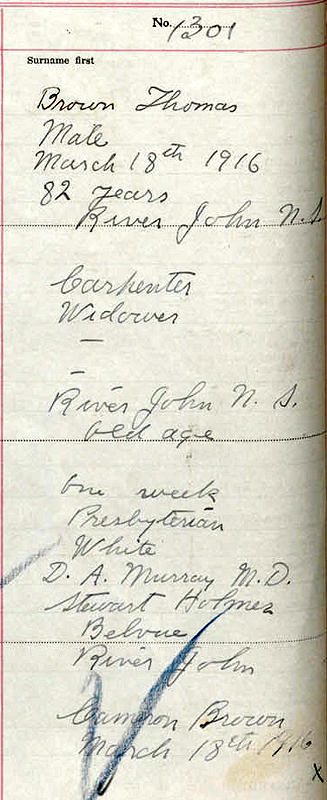 No. 1301
Surname first
Brown Thomas
Male
March 18th 1916
82 years
River John N.S.
Carpenter
Widower
—
—
River John N. S.
old age
one week
Presbyterian
White
D. A. Murray M.D.
Stewart Holmes
Belvue
River John
Cameron Brown
March 18th 1916
x